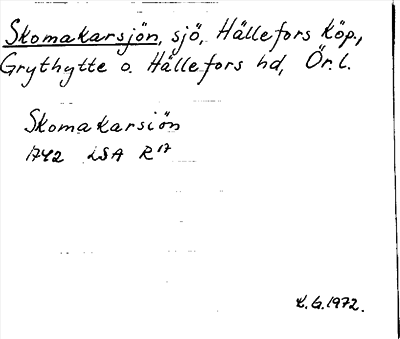 Skomakarsjön, sjö, Hällefors köp.,
Grythytte o. Hällefors hd, Ör. l.
Skomakarsiön
1742 LSA R17
K. G. 1972.